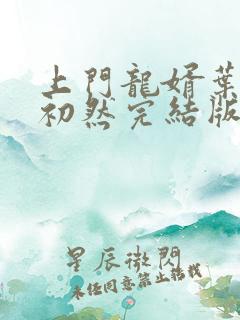 上門龍婿葉
初然完結版
星辰微閃
未經同意禁止搭載